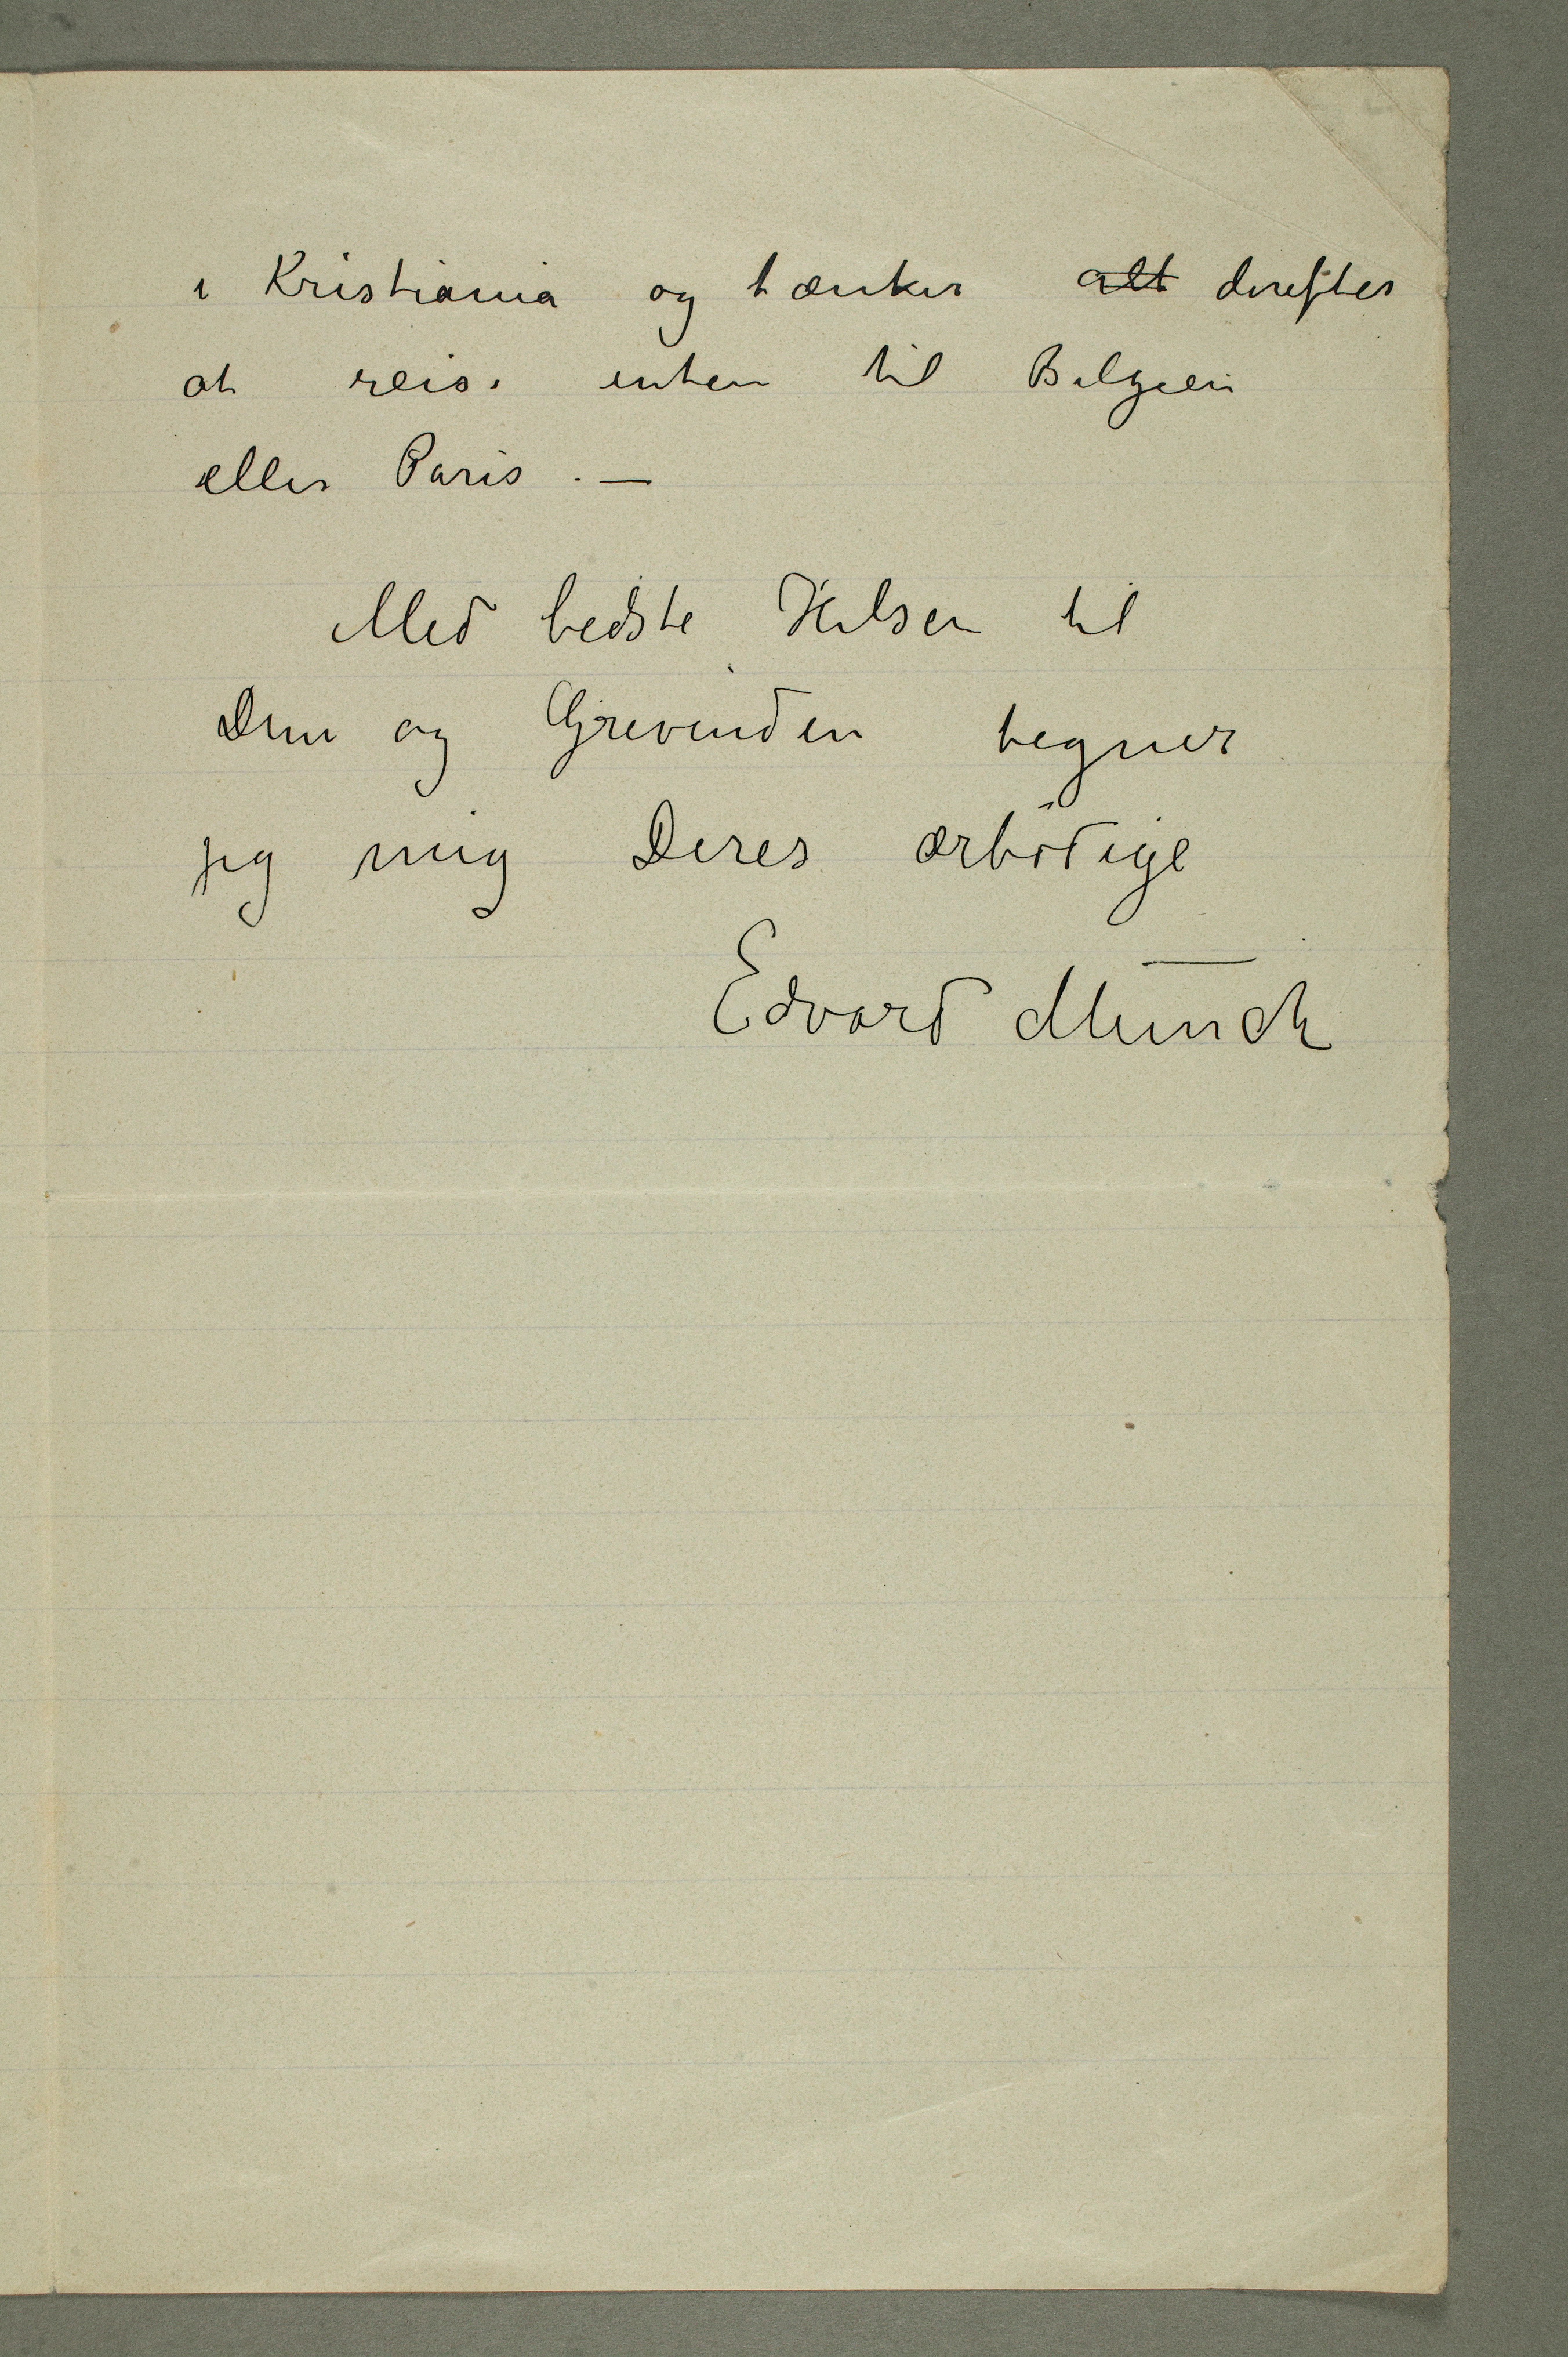 i Kristiania og tænker ~~alt~~ derefter
at reise enten til Belgien
eller Paris. —
Med bedste Hilsen til
Dem og Grevinden tegner
jeg mig Deres ærbödige
Edvard Munch